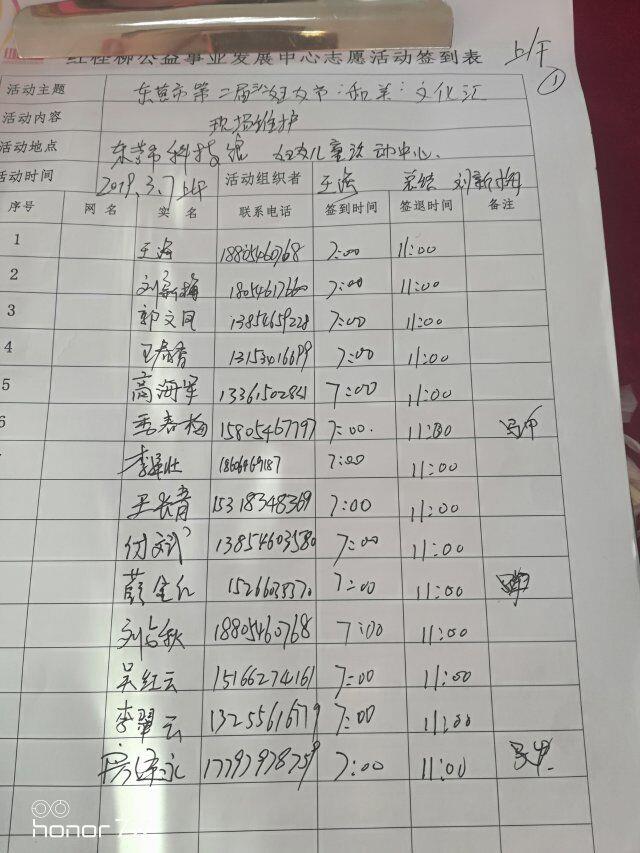 红柽柳公益事业发展中心志愿活动签到表
上午
①
活动主题 东营市第二届 妇女节"和美"文化汇
活动内容 现场维护
活动地点 东营市科技馆 妇女儿童活动中心.
活动时间 2019.3.7上午 活动组织者 王海 总结 刘新梅
序号 网名 实名 联系电话 签到时间 签退时间 备注
1 王海 18805460768 7:00 11:00
2 刘新梅 18054617660 7:00 11:00
3 郭文凤 13854659228 7:00 11:00
4 王春香 13153416699 7:00 11:00
5 高海军 13361502821 7:00 11:00
6 季春梅 15805467797 7:00. 11:00
李泽壮 18606469187 7:00 11:00
王长青 15318348369 7:00 11:00
付斌 13854603580 7:00 11:00
薛金红 7:00 11:00
刘占秋 18805460768 7:00 11:00
吴红云 15166274161 7:00 11:00
李翠云 13255616779 7:00 11:00
房泽永 17797978759 7:00 11:00
honor